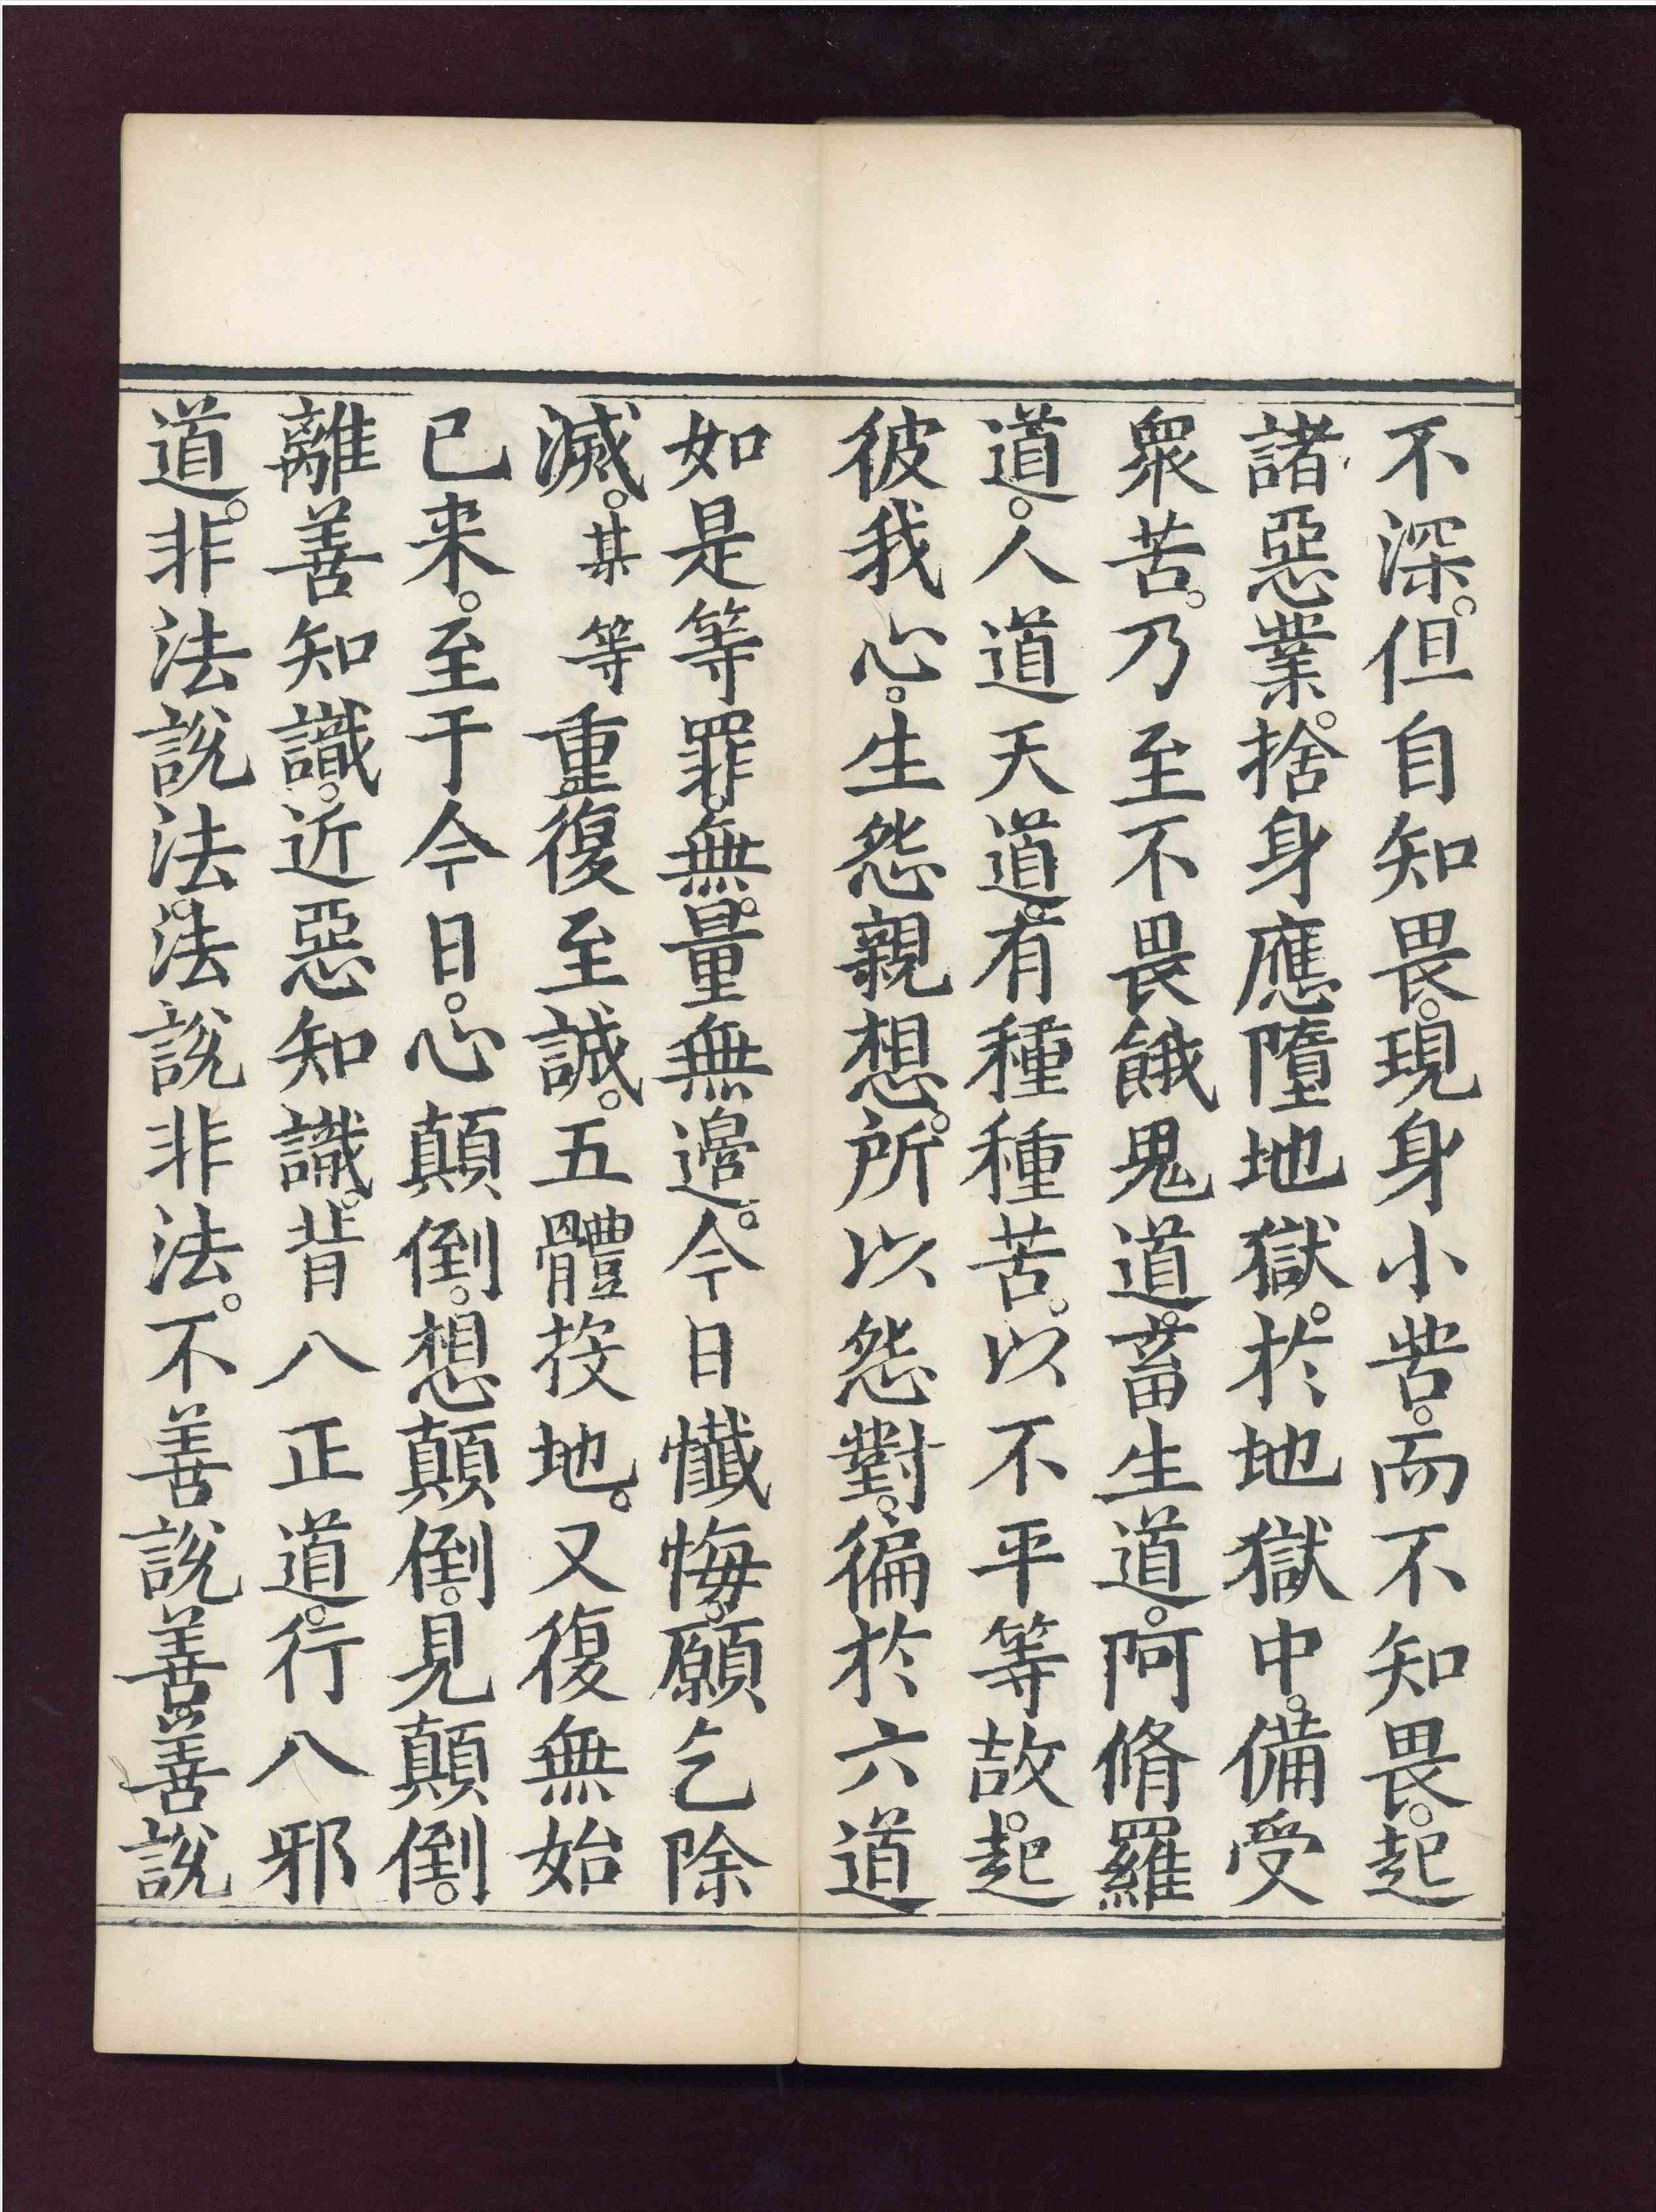 不深。但自知畏。現身小苦。而不知畏。起
諸惡業。捨身應墮地獄。於地獄中。備受
衆苦。乃至不畏餓鬼道。畜生道。阿脩羅
道。人道天道。有種種苦。以不平等故。起
彼我心。生怨親想。所以怨對。徧於六道
如是等罪。無量無邊。今日懺悔。願乞除
滅。某等重復至誠。五體投地。又復無始
已来。至于今日。心顛倒。想顛倒。見顛倒。
離善知識。近惡知識。背八正道。行八邪
道。非法說法。法說非法。不善說善。善說